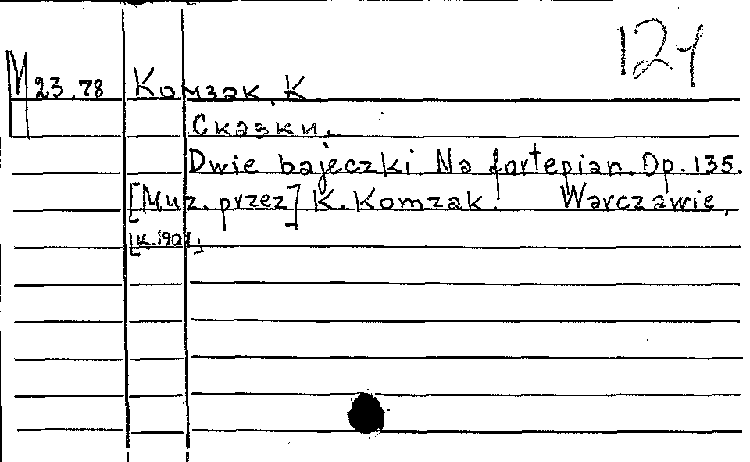 124
M 23.78 Комзак, К
Сказки.
Dwie bajeczki. Na fortepian. Op. 135.
[Muz. przez] K. Komzak. Warczawie,